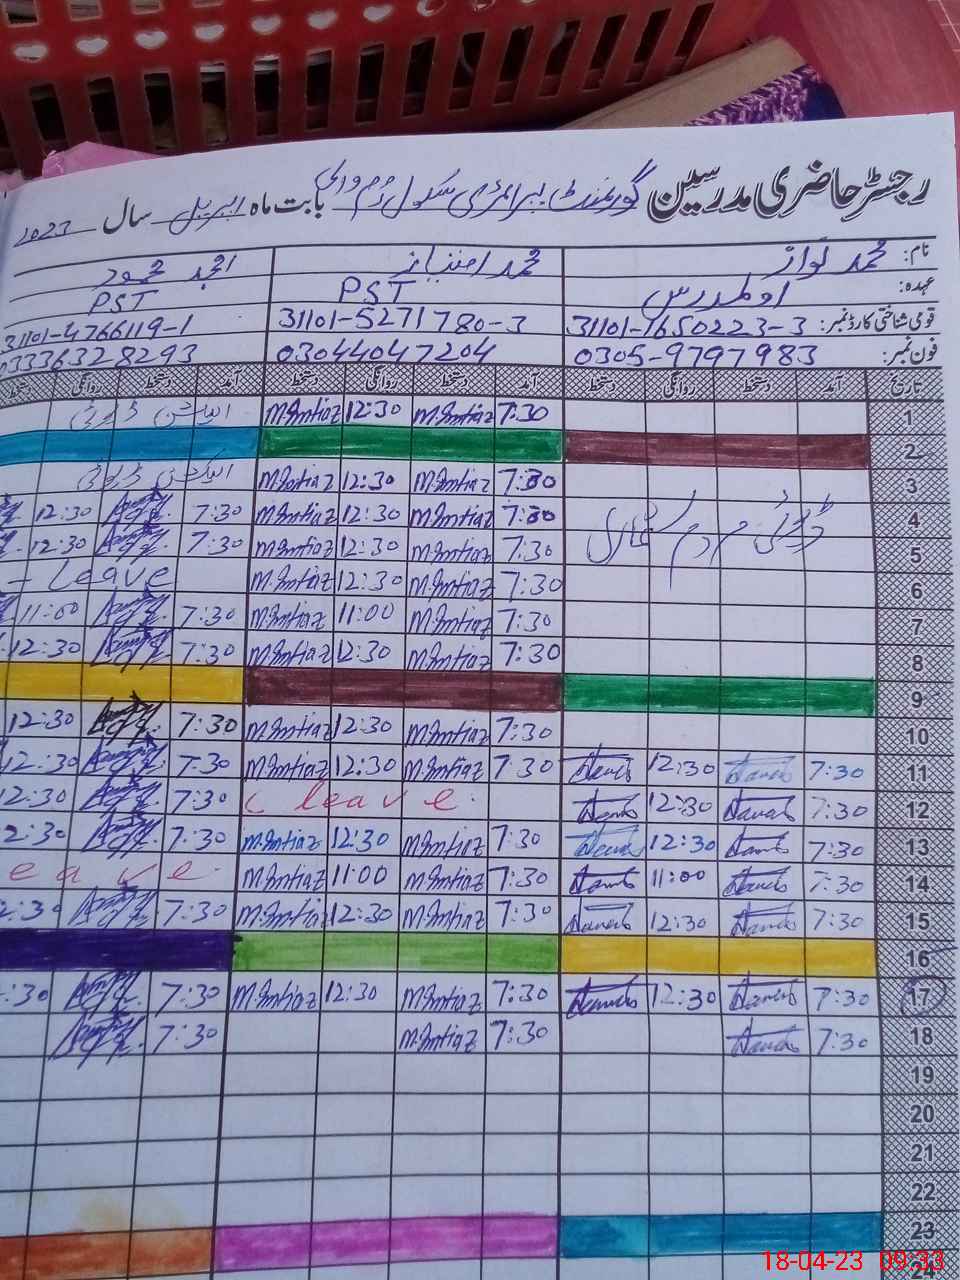 رجسٹر حاضری مدرسین گورنمنٹ پرائمری سکول بابت ماہ اپریل سال 2023
نام: محمد نواز محمد امتیاز امجد محمود
عہدہ: اول مدرس PST PST
قومی شناختی کارڈ نمبر: 31101-1650223-3 31101-5271780-3 31101-4766119-1
فون نمبر: 0305-9797983 03044047204 03336328293
تاریخ آمد دستخط روانگی دستخط آمد دستخط روانگی دستخط آمد دستخط روانگی دستخط
1 7:30 M.Imtiaz 12:30 M.Imtiaz الیکشن ڈیوٹی
2
3 7:30 M.Imtiaz 12:30 M.Imtiaz الیکشن ڈیوٹی
4 7:30 M.Imtiaz 12:30 M.Imtiaz 7:30 12:30
ڈیوٹی مردم شماری
5 7:30 M.Imtiaz 12:30 M.Imtiaz 7:30 12:30
6 7:30 M.Imtiaz 12:30 M.Imtiaz leave
7 7:30 M.Imtiaz 11:00 M.Imtiaz 7:30 11:00
8 7:30 M.Imtiaz 12:30 M.Imtiaz 7:30 12:30
9
10 7:30 M.Imtiaz 12:30 M.Imtiaz 7:30 12:30
11 7:30 12:30 7:30 M.Imtiaz 12:30 M.Imtiaz 7:30 12:30
12 7:30 12:30 leave 7:30 12:30
13 7:30 12:30 7:30 M.Imtiaz 12:30 M.Imtiaz 7:30 2:30
14 7:30 11:00 7:30 M.Imtiaz 11:00 M.Imtiaz eave
15 7:30 12:30 7:30 M.Imtiaz 12:30 M.Imtiaz 7:30 2:30
16
17 7:30 12:30 7:30 M.Imtiaz 12:30 M.Imtiaz 7:30 :30
18 7:30 7:30 M.Imtiaz 7:30
19
20
21
22
23
24
18-04-23 09:33